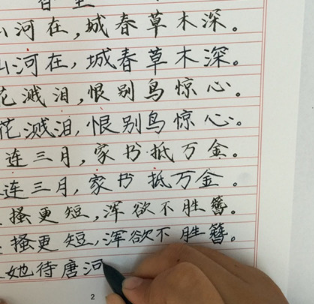 山河在，城春草木深。
山河在，城春草木深。
花溅泪，恨别鸟惊心。
花溅泪，恨别鸟惊心。
连三月，家书抵万金。
连三月，家书抵万金。
搔更短，浑欲不胜簪。
搔更短，浑欲不胜簪。
她待唐河
2